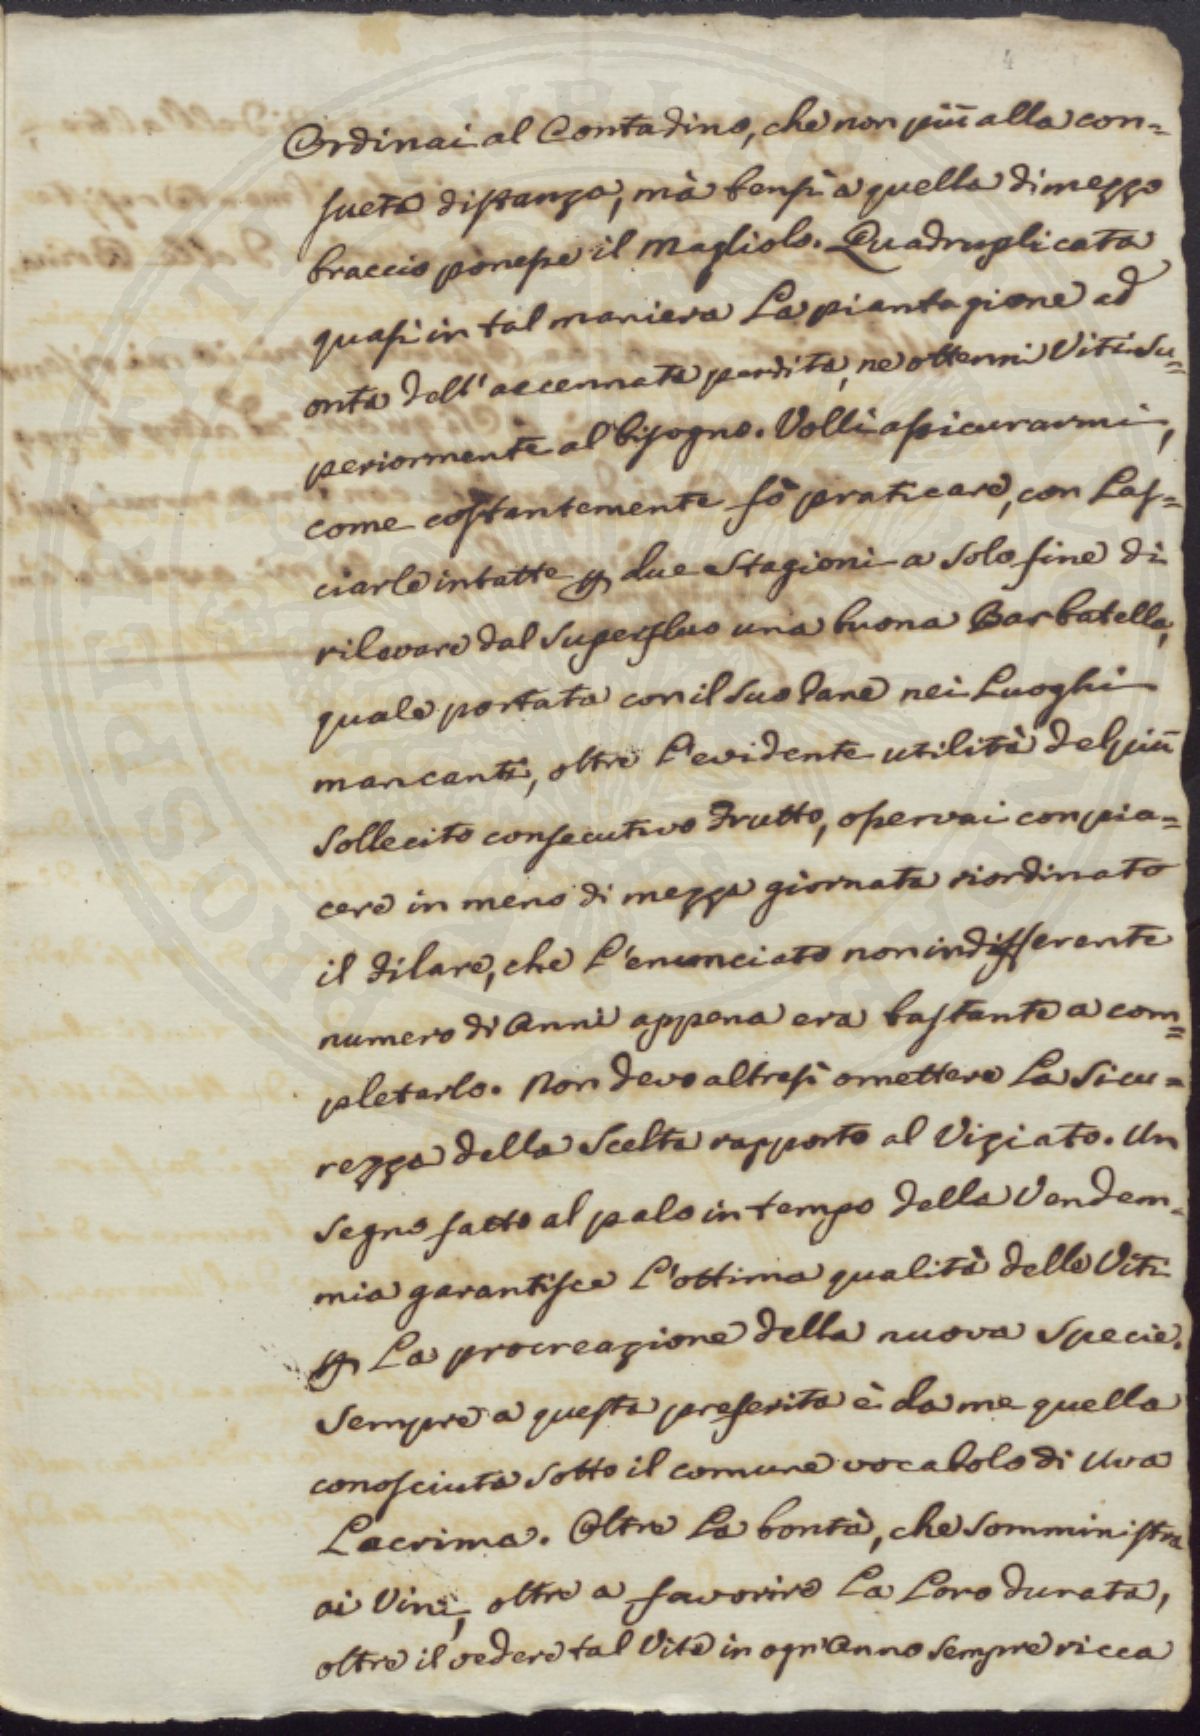 4
Ordinai al Contadino, che non più alla con=
sueta distanza, mà bensì a quella di mezzo
braccio ponesse il Magliolo. Quadruplicata
quasi in tal maniera La piantagione ad
onta dell'accennata perdita, ne ottenni Viti su=
periormente al bisogno. Volli assicurarmi,
come costantemente fò praticare, con Las=
ciarle intatte p due Stagioni a solo fine di
rilevare dal superfluo una buona Barbatella,
quale portata con il suo Pane nei Luoghi
mancanti, oltre L'evidente utilità del più
sollecito consecutivo Frutto, osservai con pia=
cere in meno di mezza giornata riordinato
il Filare, che L'enunciato non indifferente
numero di Anni appena era bastante a com=
pletarlo. Non devo altresì omettere La sicu=
rezza della Scelta rapporto al Viziato. Un
segno fatto al palo in tempo della Vendem=
mia garantisce L'ottima qualità delle Viti
p La procreazione della nuova specie.
Sempre a questa preferita è da me quella
conosciuta sotto il comune vocabolo di Uva
Lacrima. Oltre La bontà, che somministra
ai Vini, oltre a favorire La Loro durata,
oltre il vedere tal Vite in ogn'Anno sempre ricca
PROSPERITATI PUBLICAE